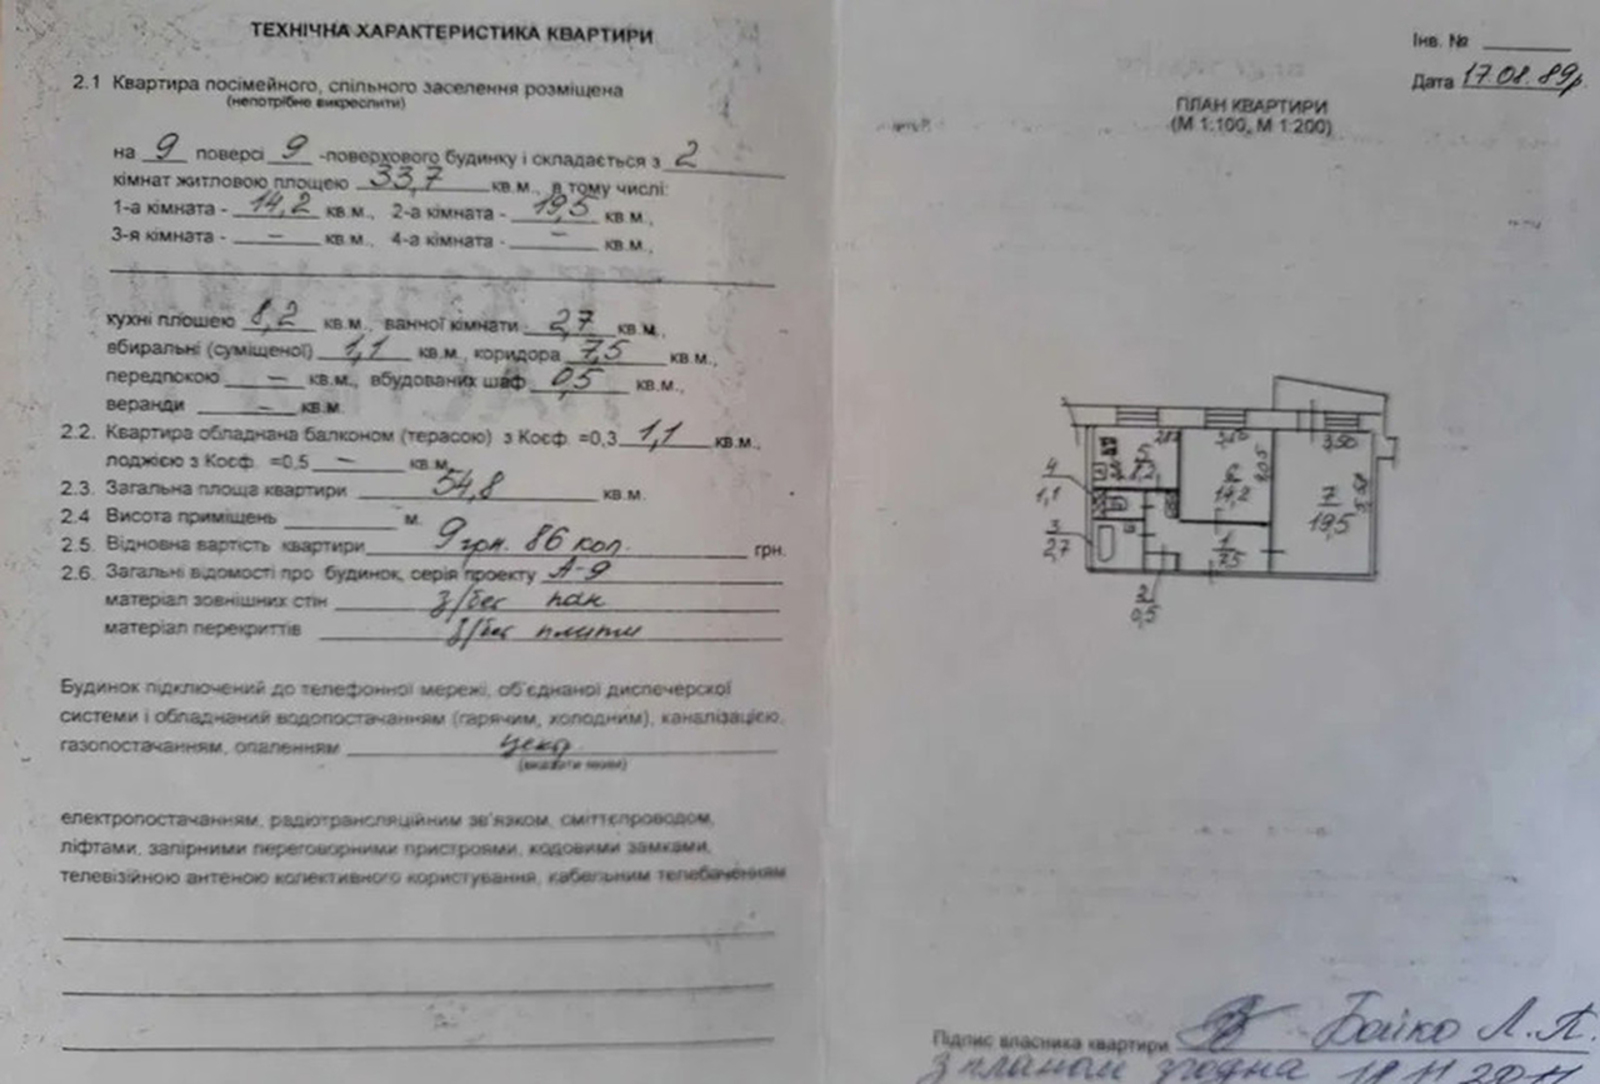 ТЕХНІЧНА ХАРАКТЕРИСТИКА КВАРТИРИ
2.1 Квартира посімейного, спільного заселення розміщена
(непотрібно викреслити)
на 9 поверсі 9 -поверхового будинку і складається з 2
кімнат житловою площею 33,7 кв.м., в тому числі:
1-а кімната - 14,2 кв.м., 2-а кімната - 19,5 кв.м.,
3-я кімната - — кв.м., 4-а кімната - — кв.м.,
кухні площею 8,2 кв.м., ванної кімнати - 2,7 кв.м.,
вбиральні (суміщеної) 1,1 кв.м., коридора 7,5 кв.м.,
передпокою — кв.м., вбудованих шаф 0,5 кв.м.,
веранди — кв.м.
2.2. Квартира обладнана балконом (терасою) з Коеф. =0,3 1,1 кв.м.,
лоджією з Коеф. =0,5 — кв.м.
2.3. Загальна площа квартири 54,8 кв.м.
2.4 Висота приміщень м.
2.5. Відновна вартість квартири 9 грн. 86 коп. грн.
2.6. Загальні відомості про будинок, серія проекту А-9
матеріал зовнішних стін з/бет пан
матеріал перекриттів з/бет плити
Будинок підключений до телефонної мережі, об'єднаної диспечерскої
системи і обладнаний водопостачанням (гарячим, холодним), каналізацією,
газопостачанням, опаленням центр.
(вказати яким)
електропостачанням, радіотрансляційним зв'язком, сміттєпроводом,
ліфтами, запірними переговорними пристроями, кодовими замками,
телевізійною антеною колективного користування, кабельним телебаченням
Інв. №
Дата 17.08.89р.
ПЛАН КВАРТИРИ
(М 1:100, М 1:200)
3,50
5
8,2
6
14,2
4,05
7
19,5
5,58
4
1,1
3
2,7
1
7,5
2
0,5
Підпис власника квартири Бойко Л.П.
З планом згодна